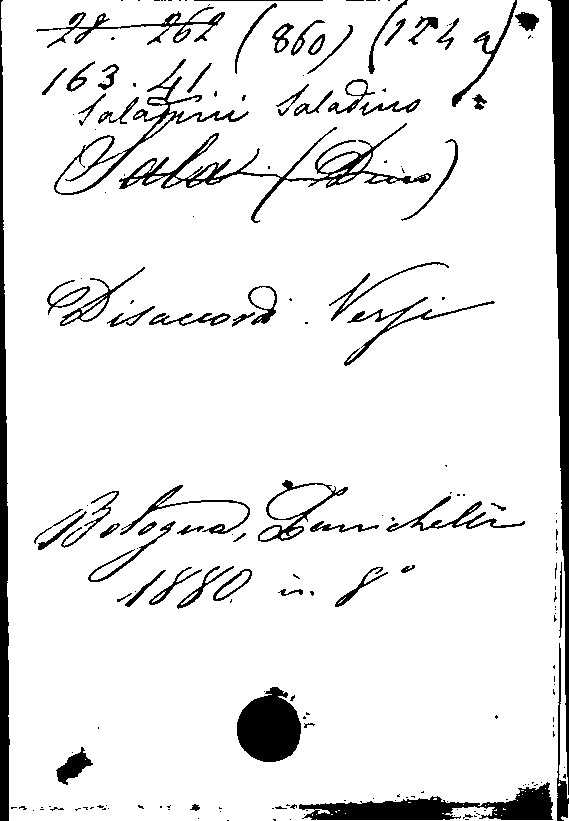 28. 262 (860) (124 a)
163. 41
Saladini Saladino
Sala (Dino)
Disaccordi. Versi
Bologna, Zanichelli
1880. in 8°